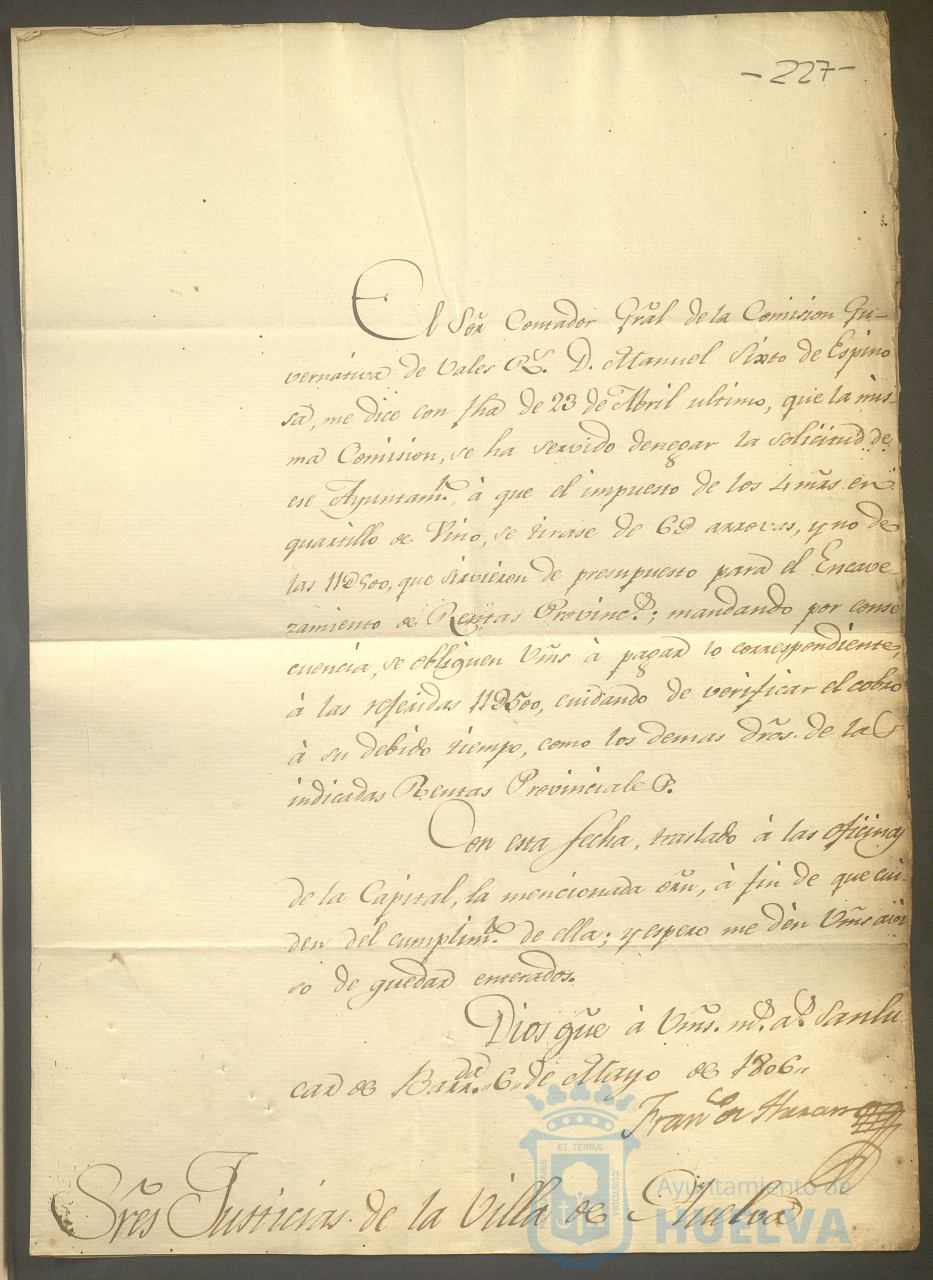 -227-
El Señor Contador Gral de la Comision Gu-
vernativa de Vales Rs. D. Manuel Sixto de Espino
sa, me dice con fha de 23 de Abril ultimo, que la mis-
ma Comision, se ha servido denegar la solicitud de
ese Ayuntamto, à que el impuesto de los 4 mrs en
quartillo de Vino, se tirase de 6D arrovas, y no de
las 11D500, que sirvieron de presupuesto para el Encave-
zamiento de Rentas Provincs; mandando por conse
cuencia, se obliguen Vms à pagar lo correspondiente
à las referidas 11D500, cuidando de verificar el cobro
à su debido tiempo, como los demas dros. de las
indicadas Rentas Provinciales.
Con esta fecha, traslado à las oficinas
de la Capital, la mencionada orn, à fin de que cui-
den del cumplimto de ella; y espero me dèn Vms avi
so de quedar enterados.
Dios gue à Vms. ms. as. Sanlu
car de Barrda. 6,, de Mayo de 1806,,
Franco de
Sres Justicias de la Villa de Huelva
ET TERRÆ
CUSTODIA
Ayuntamiento de
HUELVA